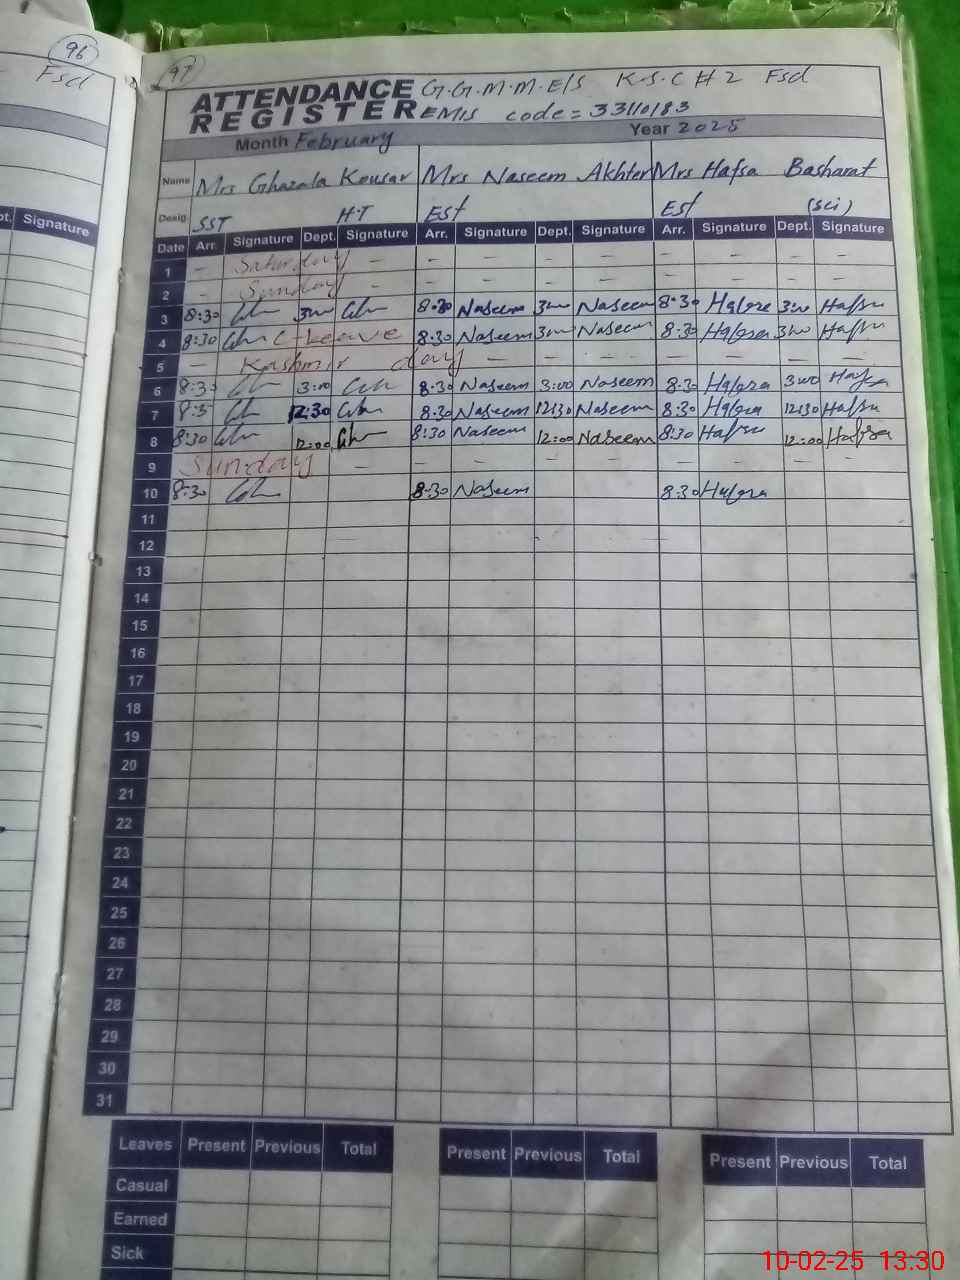 96
Fsd
Signature
97
ATTENDANCE G.G.M.M.E/S K.S.C # 2 Fsd
REGISTER EMIS code = 33110183
Month February Year 2025
Name Mrs Ghazala Kousar Mrs Naseem Akhter Mrs Hafsa Basharat
Desig. SST H.T Est Est (Sci)
Date Arr. Signature Dept. Signature Arr. Signature Dept. Signature Arr. Signature Dept. Signature
1 - Saturday - - - - - - - - -
2 - Sunday - - - - - - - - -
3 8:30 3:00 8:30 Naseem 3:00 Naseem 8:30 Hafsa 3:00 Hafsa
4 8:30 C-Leave 8:30 Naseem 3:00 Naseem 8:30 Hafsa 3:00 Hafsa
5 - Kashmir day - - - - - - -
6 8:30 3:00 8:30 Naseem 3:00 Naseem 8:30 Hafsa 3:00 Hafsa
7 12:30 8:30 Naseem 12:30 Naseem 8:30 Hafsa 12:30 Hafsa
8 8:30 12:00 8:30 Naseem 12:00 Naseem 8:30 Hafsa 12:00 Hafsa
9 Sunday - - - - - - - - -
10 8:30 8:30 Naseem 8:30 Hafsa
11
12
13
14
15
16
17
18
19
20
21
22
23
24
25
26
27
28
29
30
31
Leaves Present Previous Total Present Previous Total Present Previous Total
Casual
Earned
Sick
10-02-25 13.30